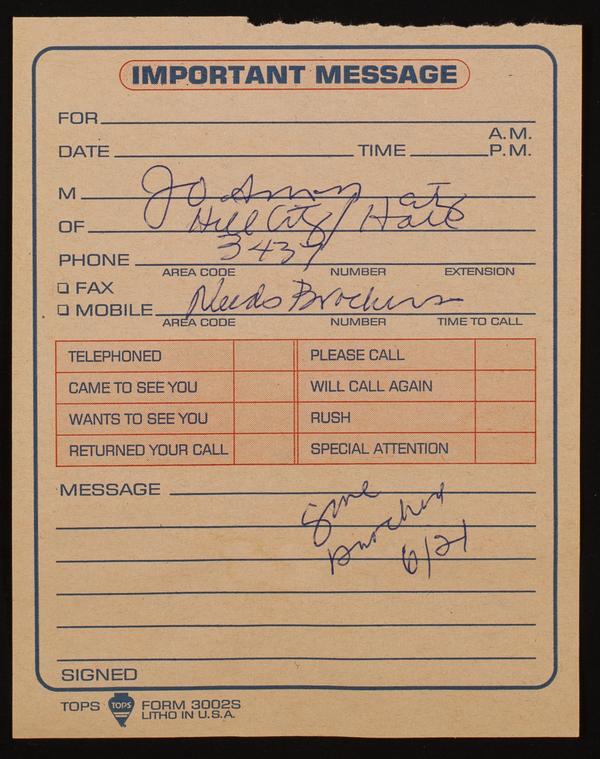 IMPORTANT MESSAGE
FOR
A.M.
DATE TIME P.M.
M Jo Ann at
OF Hill City/Hall
PHONE 3437
AREA CODE NUMBER EXTENSION
FAX
MOBILE Needs Brochures
AREA CODE NUMBER TIME TO CALL
TELEPHONED PLEASE CALL
CAME TO SEE YOU WILL CALL AGAIN
WANTS TO SEE YOU RUSH
RETURNED YOUR CALL SPECIAL ATTENTION
MESSAGE
6/21
SIGNED
TOPS TOPS FORM 3002S
LITHO IN U.S.A.